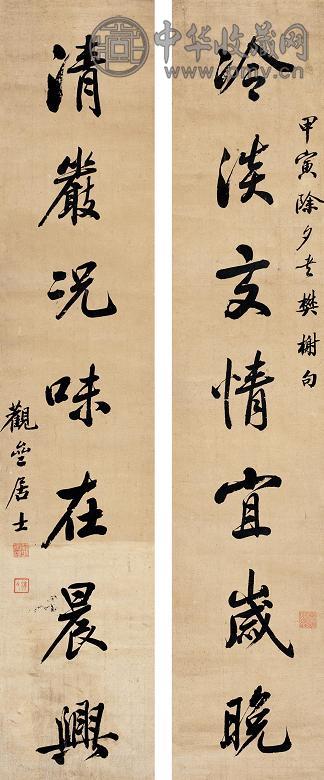 甲寅除夕書樊榭句
冷淡交情宜歲晚
清嚴況味在晨興
觀居士
中华收藏网